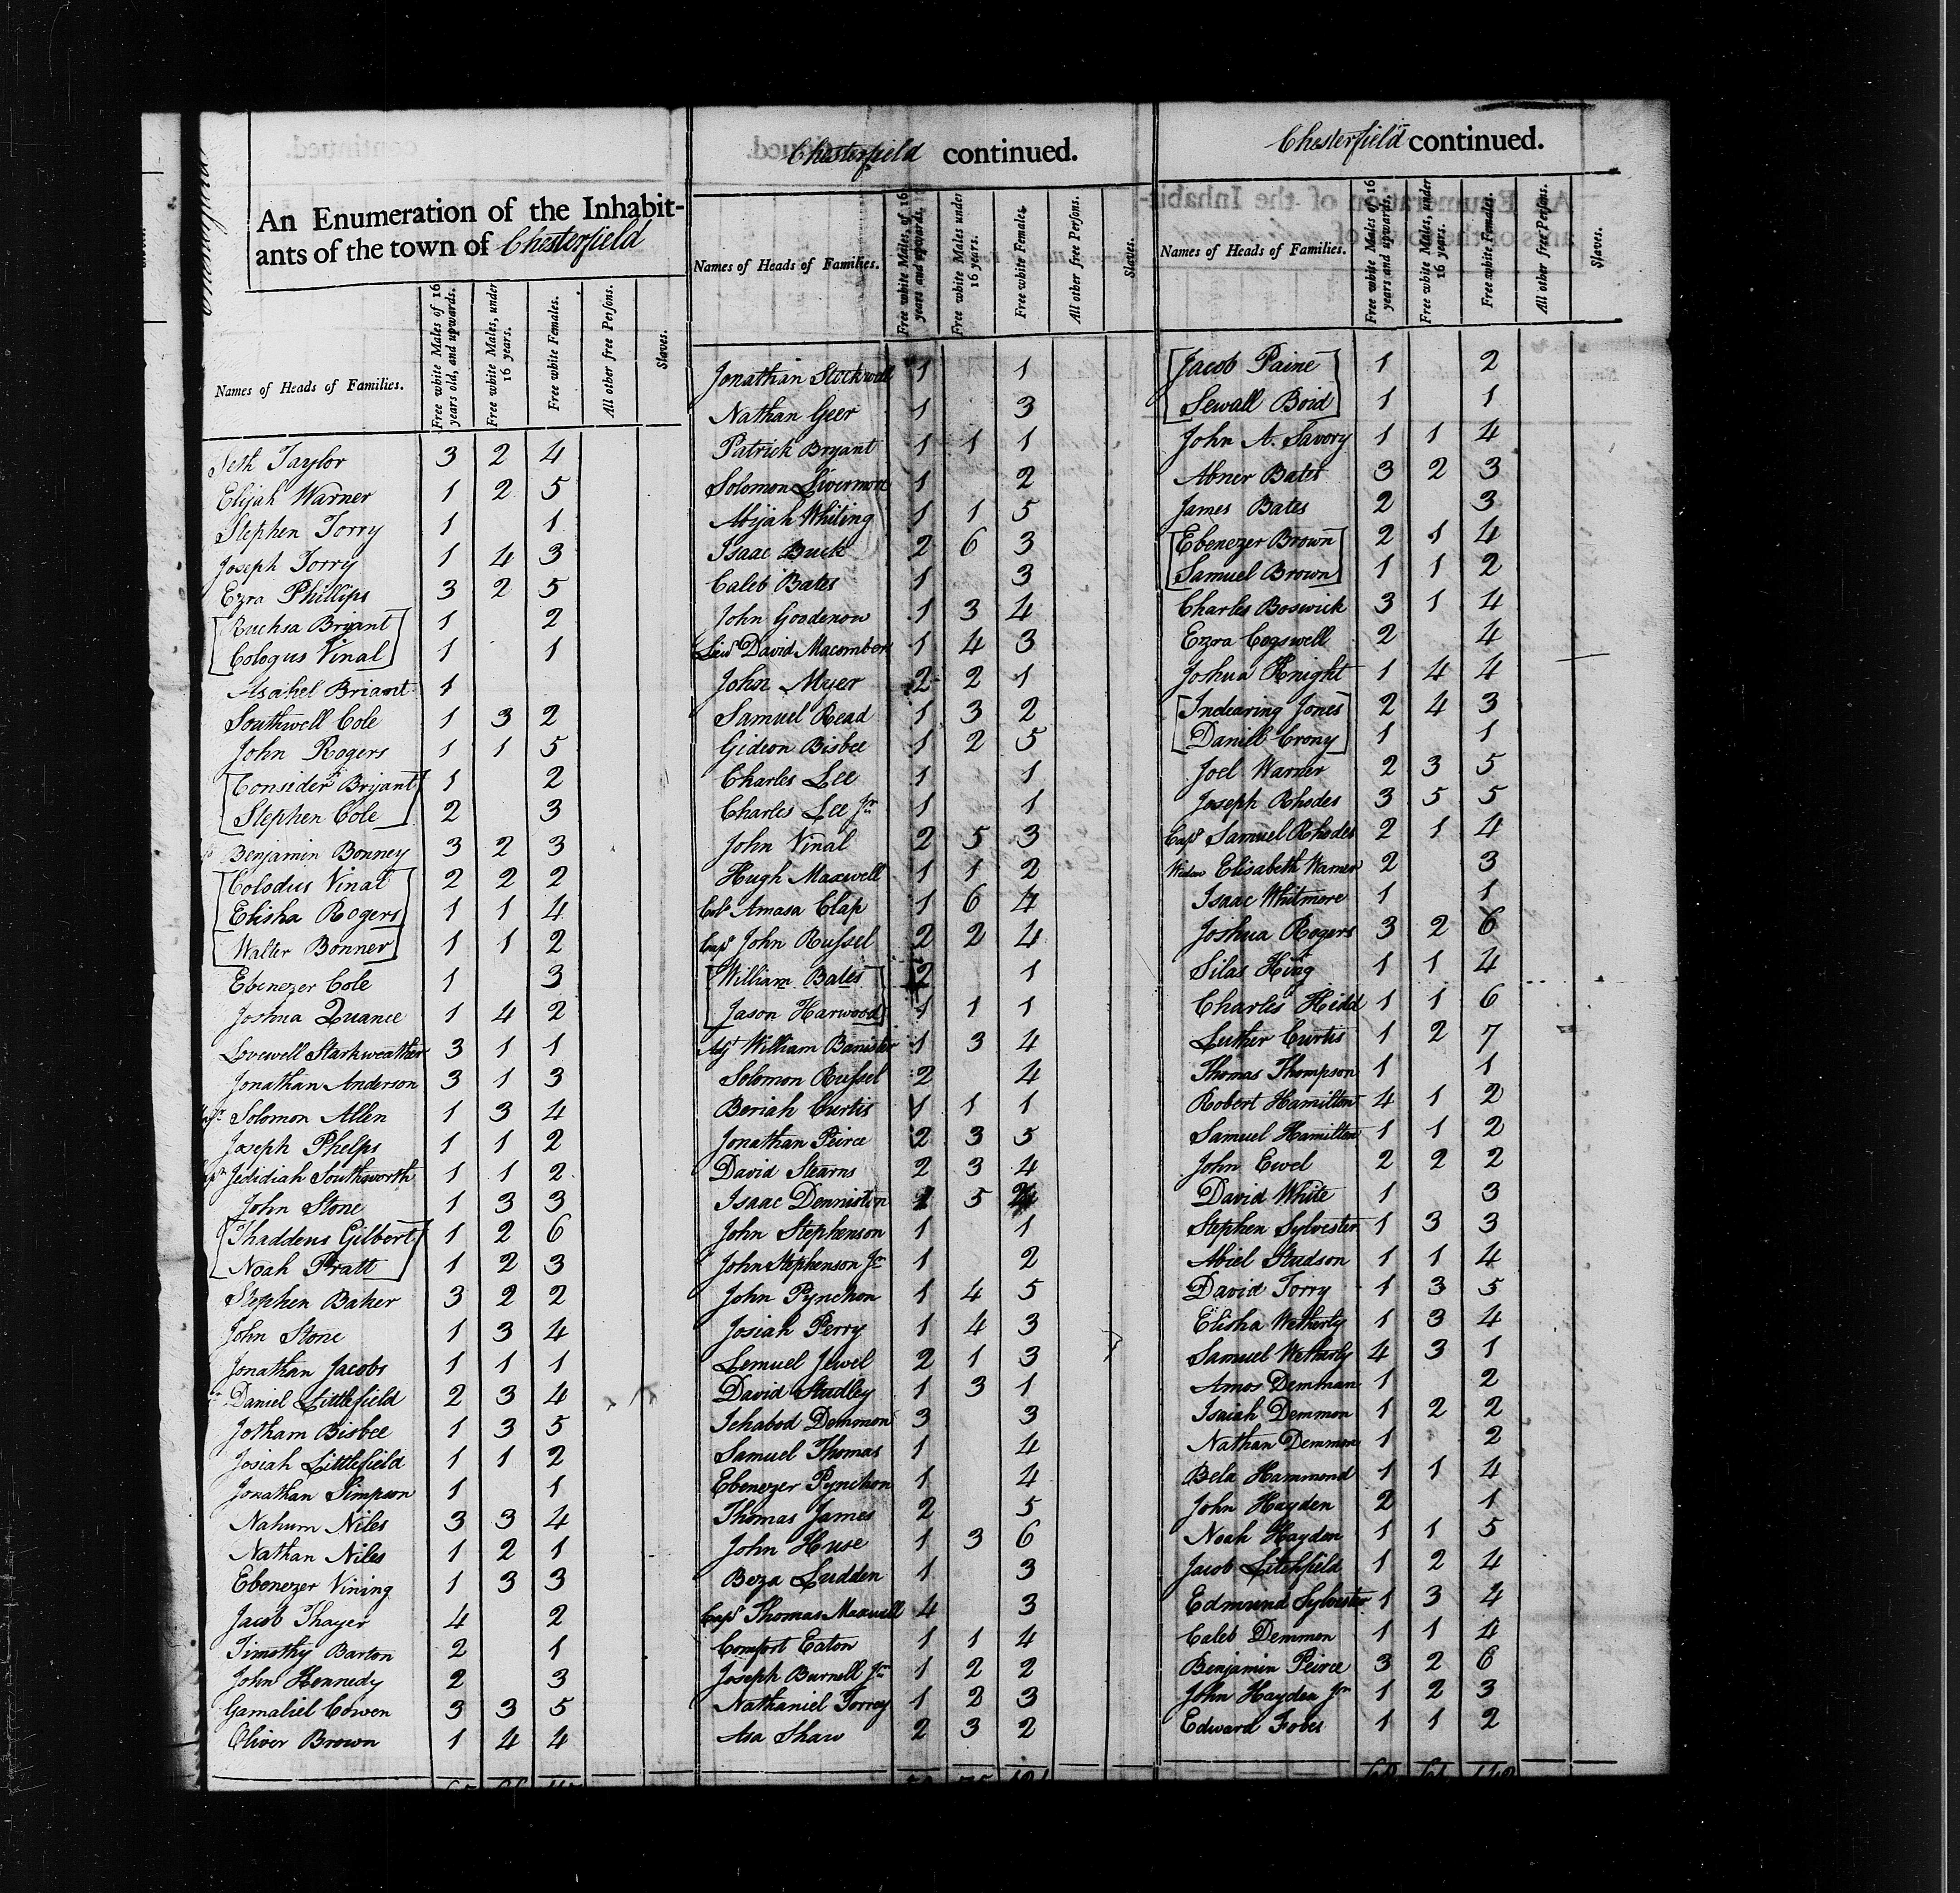 An Enumeration of the Inhabit-
ants of the town of Chesterfield
Names of Heads of Families. Free white Males of 16 years old, and upwards. Free white Males, under 16 years. Free white Females. All other free Persons. Slaves.
Seth Taylor 3 2 4
Elijah Warner 1 2 5
Stephen Torry 1 1
Joseph Torry 1 4 3
Ezra Phillips 3 2 5
Bryant 1 2
Cologus Vinal 1 1
Asahel Briant 1
Southwell Cole 1 3 2
John Rogers 1 1 5
Consider Bryant 1 2
Stephen Cole 2 3
Benjamin Bonney 3 2 3
Colodus Vinal 2 2 2
Elisha Rogers 1 1 4
Walter Bonner 1 1 2
Ebenezer Cole 1 3
Joshua Quance 1 4 2
Lovewell Starkweather 3 1 1
Jonathan Anderson 3 1 3
Solomon Allen 1 3 4
Joseph Phelps 1 1 2
Jedidiah Southworth 1 1 2
John Stone 1 3 3
Thaddeus Gilbert 1 2 6
Noah Pratt 1 2 3
Stephen Baker 3 2 2
John Stone 1 3 4
Jonathan Jacobs 1 1 1
Daniel Littlefield 2 3 4
Jotham Bisbee 1 3 5
Josiah Littlefield 1 1 2
Jonathan Simpson 1 1
Nahum Niles 3 3 4
Nathan Niles 1 2 1
Ebenezer Vining 1 3 3
Jacob Thayer 4 2
Timothy Barton 2 1
John Kennedy 2 3
Gamaliel Cowen 3 3 5
Oliver Brown 1 4 4
Chesterfield continued.
Names of Heads of Families. Free white Males, of 16 years and upwards. Free white Males under 16 years. Free white Females. All other free Persons. Slaves.
Jonathan Stockwell 1 1
Nathan Geer 1 3
Patrick Bryant 1 1 1
Solomon Livermore 1 2
Abijah Whiting 1 1 5
Isaac Buck 2 6 3
Caleb Bates 1 3
John Goodenow 1 3 4
Lieut David Macomber 1 4 3
John Myer 2 2 1
Samuel Read 1 3 2
Gideon Bisbee 1 2 5
Charles Lee 1 1
Charles Lee Jr 1 1
John Vinal 2 5 3
Hugh Maxwell 1 1 2
Colo Amasa Clap 1 6 4
Capt John Russel 2 2 4
William Bates 2 1
Jason Harwood 1 1 1
Adjt William Banister 1 3 4
Solomon Russel 2 4
Beriah Curtis 1 1 1
Jonathan Peirce 2 3 5
David Stearns 2 3 4
Isaac Denniston 1 5
John Stephenson 1 1
John Stephenson Jr 1 2
John Pynchon 1 4 5
Josiah Perry 1 4 3
Lemuel Jewel 2 1 3
David Stadley 1 3 1
Ichabod Demmon 3 3
Samuel Thomas 1 4
Ebenezer Pynchon 1 4
Thomas James 2 5
John Huse 1 3 6
Beza Ludden 1 3
Capt Thomas Maxwell 4 3
Comfort Eaton 1 1 4
Joseph Burnell Jr 1 2 2
Nathaniel Torrey 1 2 3
Asa Shaw 2 3 2
Chesterfield continued.
Names of Heads of Families. Free white Males of 16 years and upwards. Free white Males, under 16 years. Free white Females. All other free Persons. Slaves.
Jacob Paine 1 2
Sewall Boid 1 1
John A. Savory 1 1 4
Abner Bates 3 2 3
James Bates 2 3
Ebenezer Brown 2 1 4
Samuel Brown 1 1 2
Charles Boswick 3 1 4
Ezra Cogswell 2 4
Joshua Knight 1 4 4
Indearing Jones 2 4 3
Daniel Crony 1 1
Joel Warner 2 3 5
Joseph Rhodes 3 5 5
Capt Samuel Rhodes 2 1 4
Widow Elisabeth Warner 2 3
Isaac Whitmore 1 1
Joshua Rogers 3 2 6
Silas King 1 1 4
Charles Kidd 1 1 6
Luther Curtis 1 2 7
Thomas Thompson 1 1
Robert Hamilton 4 1 2
Samuel Hamilton 1 1 2
John Ewel 2 2 2
David White 1 3
Stephen Sylvester 1 3 3
Abiel Studson 1 1 4
David Torry 1 3 5
Elisha Wetherly 1 3 4
Samuel Wetherly 4 3 1
Amos Demman 1 2
Isaiah Demmon 1 2 2
Nathan Demmon 1 2
Bela Hammond 1 1 4
John Hayden 2 1
Noah Hayden 1 1 5
Jacob Litchfield 1 2 4
Edmund Sylvester 1 3 4
Caleb Demmon 1 1 4
Benjamin Peirce 3 2 6
John Hayden Jr 1 2 3
Edward Fobes 1 1 2